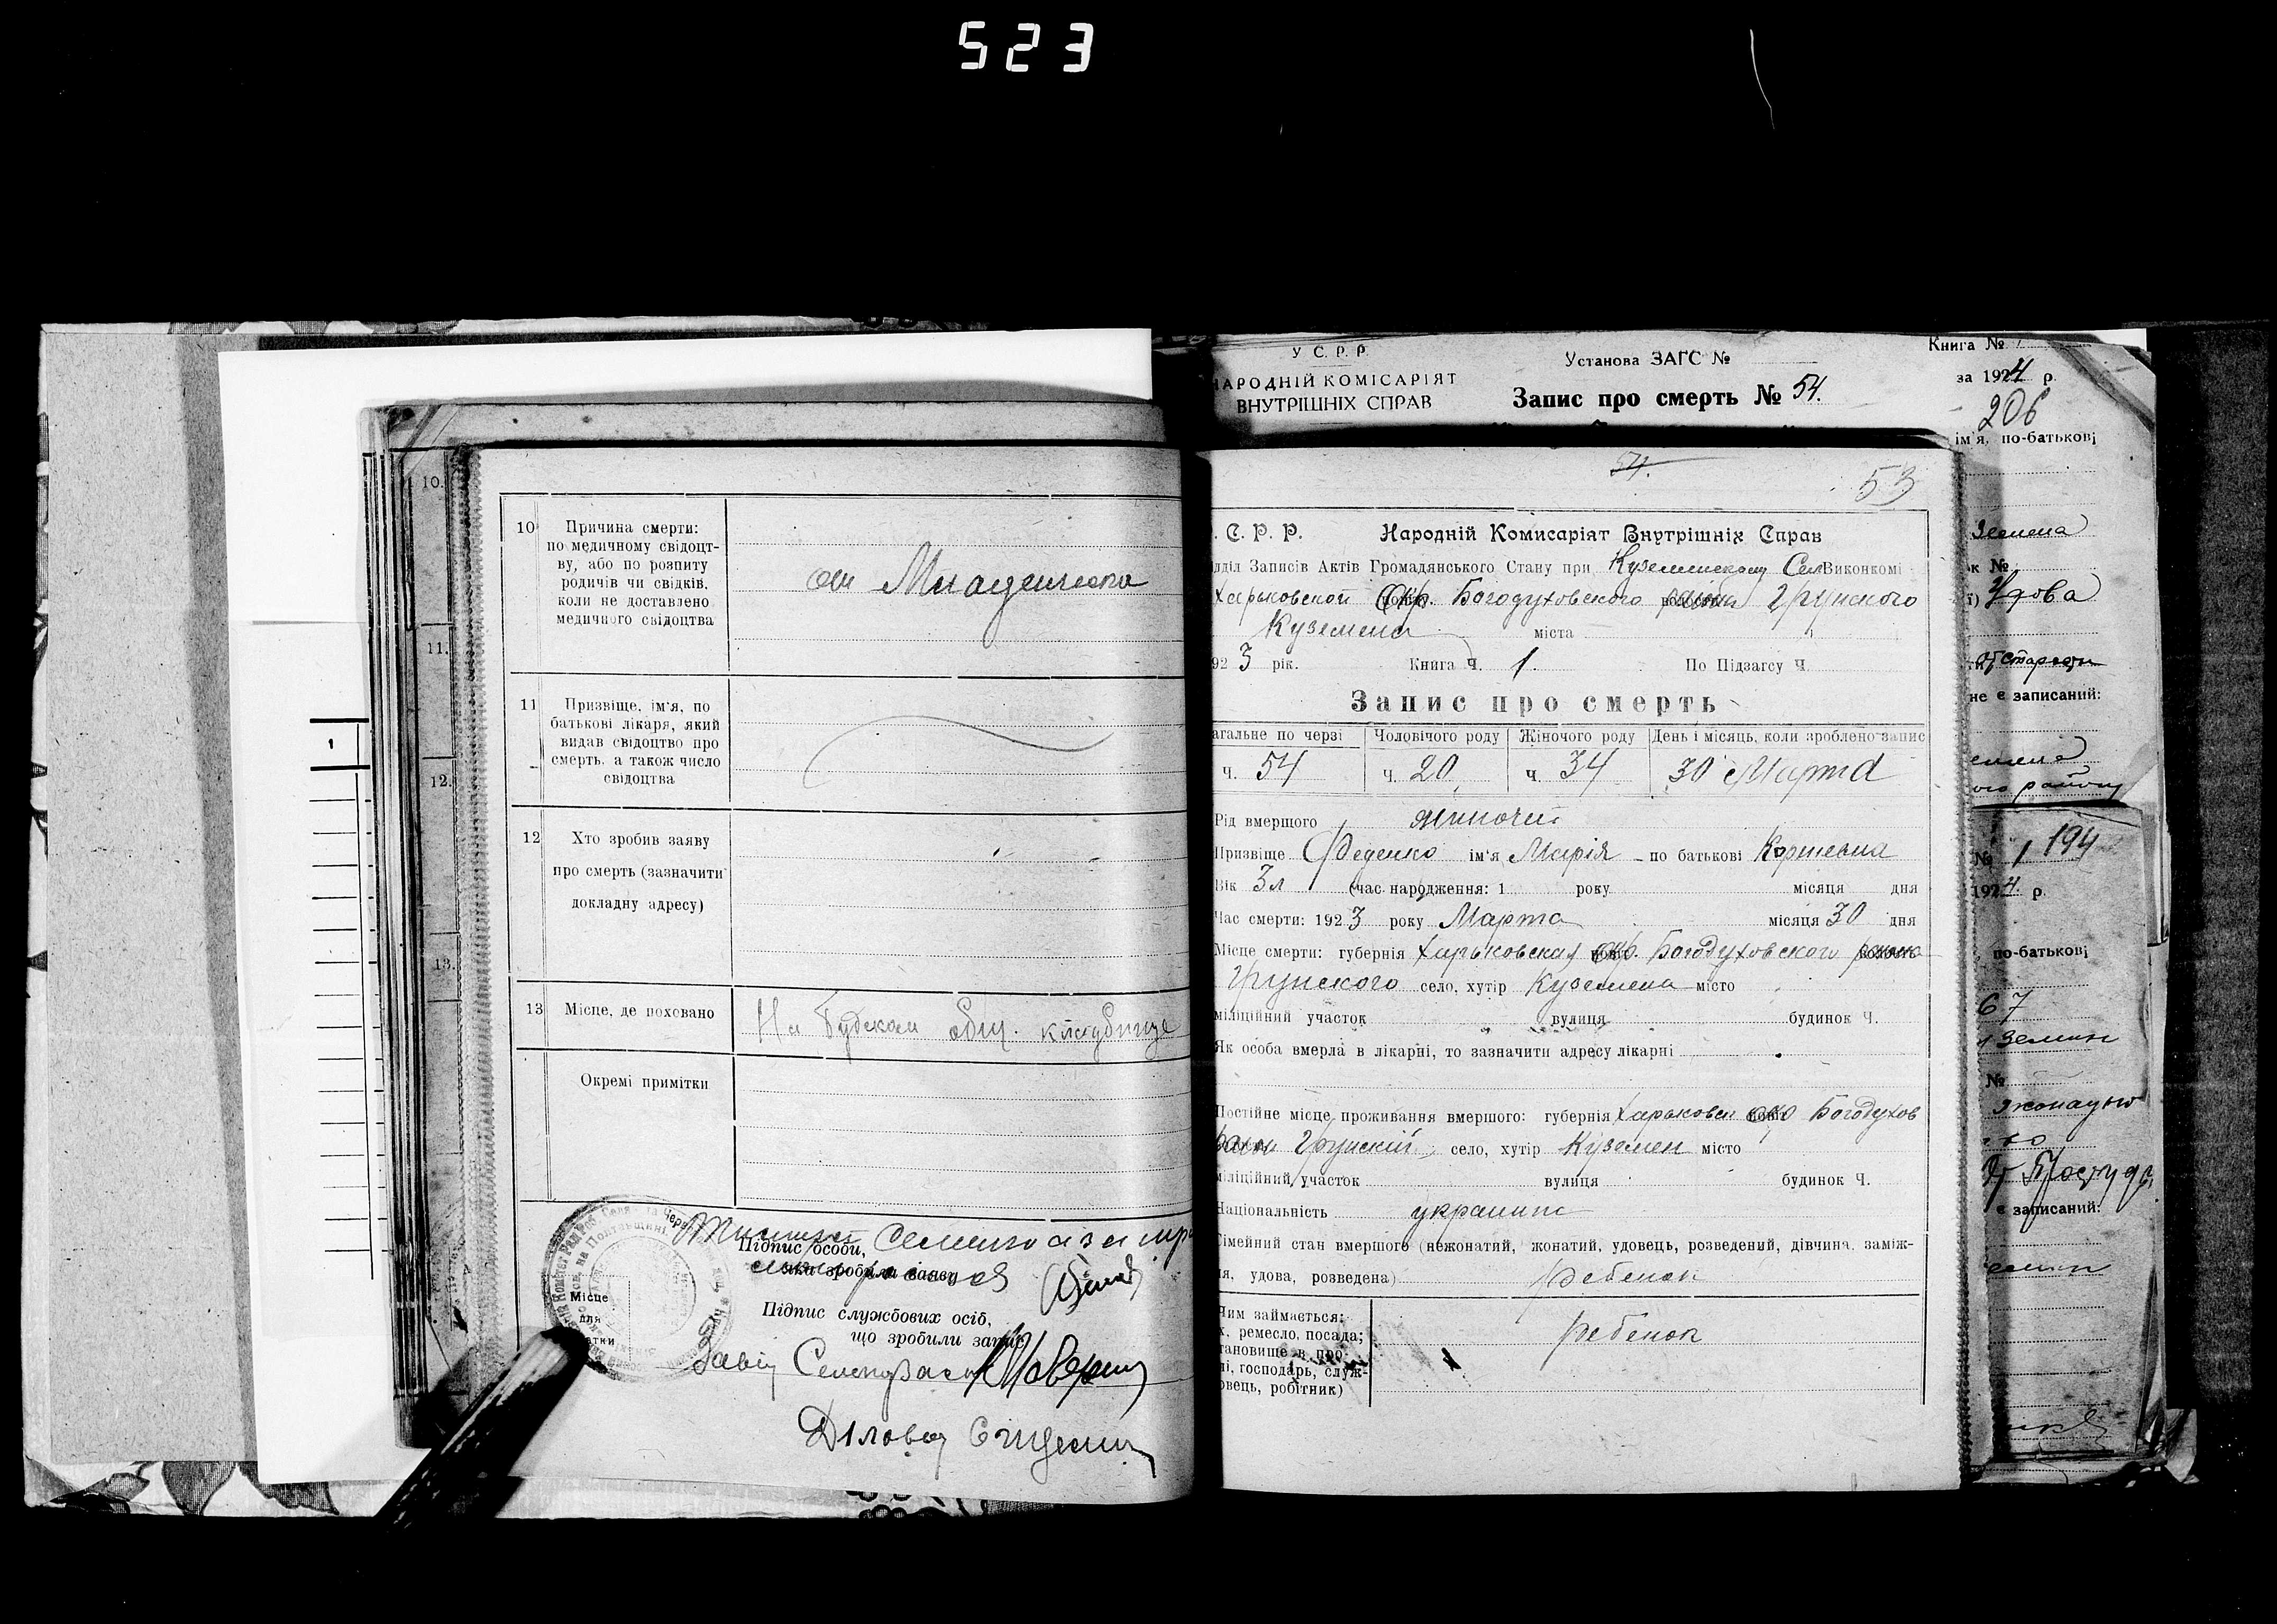 523
10.
11.
12.
13.
1
10 Причина смерти:
по медичному свідоцт-
ву, або по розпиту
родичів чи свідків,
коли не доставлено
медичного свідоцтва
от Младенчества
11 Призвіще, ім'я, по
батькові лікаря, який
видав свідоцтво про
смерть, а також число
свідоцтва
12 Хто зробив заяву
про смерть (зазначити
докладну адресу)
13 Місце, де поховано
На Будском общ. кладбище
Окремі примітки
Підпис особи,
яка зробила заяву
Місце
для
Підпис службових осіб,
що зробили запис
У С. Р. Р.
НАРОДНІЙ КОМІСАРІЯТ
ВНУТРІШНІХ СПРАВ
Установа ЗАГС №
Запис про смерть № 54.
Книга №
за 1924 р.
206
ім'я, по-батькові
54.
53
. С. Р. Р. Народній Комисаріят Внутрішніх Справ
ідділ Записів Актів Громадянського Стану при Куземенском Сел Виконкомі
Харьковской Окр. Богодуховского района Грунского
Куземена міста
923 рік. Книга Ч. 1. По Підзагсу Ч.
Запис про смерть
агальне по черзі Чоловічого роду Жіночого роду День і місяць, коли зроблено запис
ч. 54 ч. 20 ч. 34 30 Марта
Рід вмершого жиночий
Призвіще Феденко ім'я Марія по батькові Корнеевна
Вік 3 л (час народження: 1 року місяця дня
Час смерти: 1923 року Марта місяця 30 дня
Місце смерти: губернія Харьковская окр. Богодуховского района
Грунского село, хутір Куземена місто
міліційний участок вулиця будинок Ч.
Як особа вмерла в лікарні, то зазначити адресу лікарні
Постійне місце проживання вмершого: губернія Харьковск окр Богодухов
район Грунский село, хутір Куземен місто
міліційний участок вулиця будинок Ч.
Національність украинс
імейний стан вмершого (нежонатий, жонатий, удовець, розведений, дівчина, заміж-
ня, удова, розведена) ребенок
Чим займається:
х, ремесло, посада;
тановище в про-
і, господарь, служ-
овець, робітник)
ребенок
земена
к №
Удова
от старости
не є записаний:
ого району
№ 1 194
1924 р.
по-батькові
67
№
є записаний: